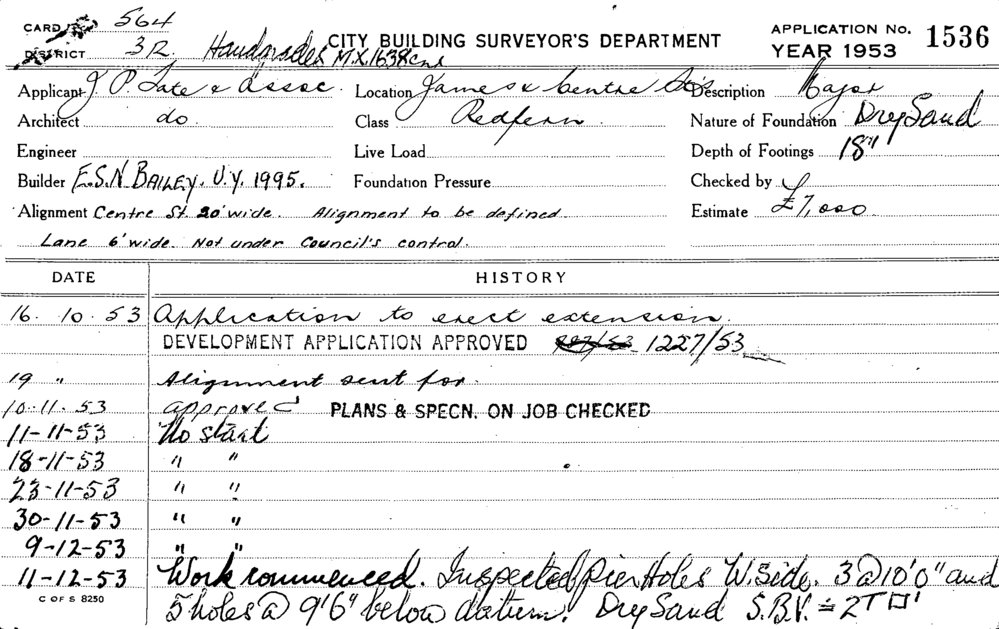 CARD 564
DISTRICT 3R. M.X.1638 CITY BUILDING SURVEYOR'S DEPARTMENT APPLICATION No. 1536
YEAR 1953
Applicant J. P. Tate & Assoc. Location James & Centre Sts Description Major
Architect do. Class Redfern Nature of Foundation Dry Sand
Engineer Live Load Depth of Footings 18"
Builder E.S.N BAILEY. U.Y. 1995. Foundation Pressure Checked by
Alignment Centre St. 20' wide. Alignment to be defined. Estimate £7,000
Lane 6' wide. Not under Council's control.
DATE HISTORY
16. 10. 53 Application to erect extension.
DEVELOPMENT APPLICATION APPROVED 1227/53
19 " Alignment sent for.
10.11.53 approved PLANS & SPECN. ON JOB CHECKED
11-11-53 No start
18-11-53 " "
23-11-53 " "
30-11-53 " "
9-12-53 " "
11-12-53 Work commenced. Inspected Pier Holes W. Side. 3 @ 10'0" and
C OF S 8250 5 holes @ 9'6" below datum. Dry Sand S.B.V. = 2T □'